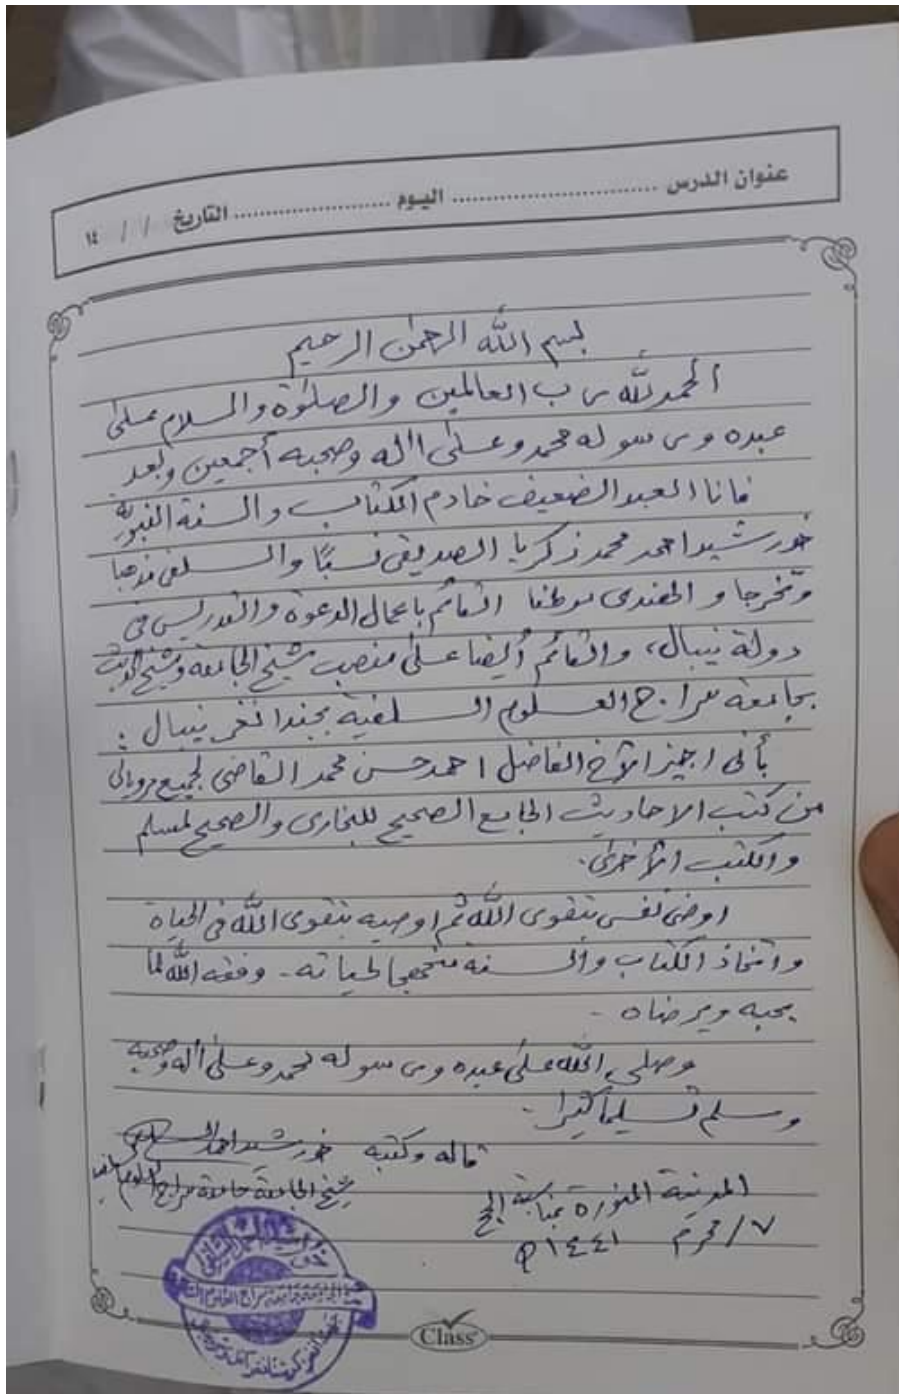 عنوان الدرس .................... اليوم .................... التاريخ / / ١٤
بسم الله الرحمن الرحيم
الحمد لله رب العالمين والصلوة والسلام على
عبده ورسوله محمد وعلى اله وصحبه أجمعين وبعد
فانا العبد الضعيف خادم الكتاب والسنة النبوية
خورشيد احمد محمد زكريا الصديقى نسبًا والسلفى مذهبا
وتخرجا والهندى موطنا القائم باعمال الدعوة والتدريس فى
دولة نيبال، والقائم أيضا على منصب شيخ الجامعة وشيخ الحديث
بجامعة سراج العلوم السلفية بجندا نغر نيبال :
بأنى اجيز الأخ الفاضل احمد حسن محمد القاضى لجميع مروياتى
من كتب الاحاديث الجامع الصحيح للبخارى والصحيح لمسلم
والكتب الأخرى.
اوصى نفسى بتقوى الله ثم اوصيه بتقوى الله فى الحياة
واتخاذ الكتاب والسنة منهجا لحياته - وفقه الله لما
يحبه ويرضاه -
وصلى الله على عبده ورسوله محمد وعلى أله وصحبه
وسلم تسليما كثيرا -
قاله وكتبه خورشيد احمد السلفى
شيخ الجامعة جامعة سراج العلوم
المدينة المنورة بمناسبة الحج
٧/ محرم ١٤٤١ ه
Class